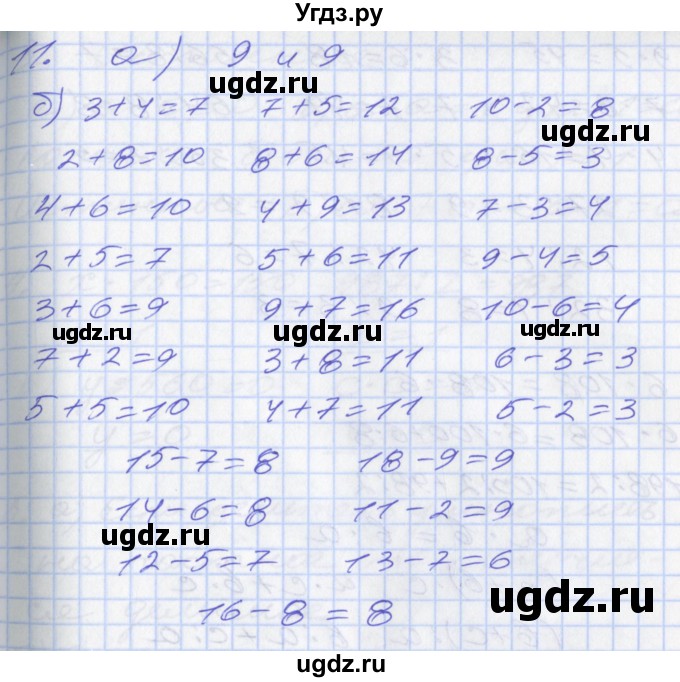 Угдз.ру
11. а) 9 и 9
ugdz.ru
б) 3+4=7 7+5=12 10-2=8
ugdz.ru
2+8=10 8+6=14 8-5=3
4+6=10 4+9=13 7-3=4
2+5=7 5+6=11 9-4=5
3+6=9 9+7=16 10-6=4
ugdz.ru ugdz.ru ugdz.ru
7+2=9 3+8=11 6-3=3
5+5=10 4+7=11 5-2=3
15-7=8 18-9=9
14-6=8 11-2=9
ugdz.ru
12-5=7 13-7=6
ugdz.ru
16-8=8
ugdz.ru